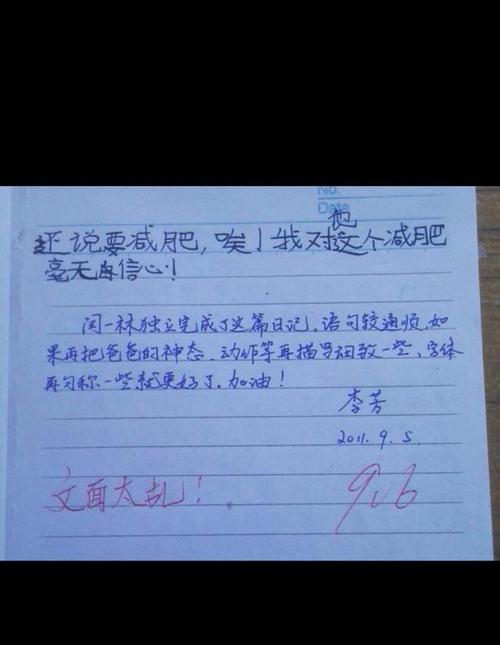 No.
Date
他
还说要减肥,唉!我对这个减肥
毫无自信心!
闫一林独立完成了这篇日记,语句较通顺,如
果再把爸爸的神态、动作等再描写细致一些、字体
再匀称一些就更好了。加油!
李芳
2011.9.5.
文面太乱!
9.6